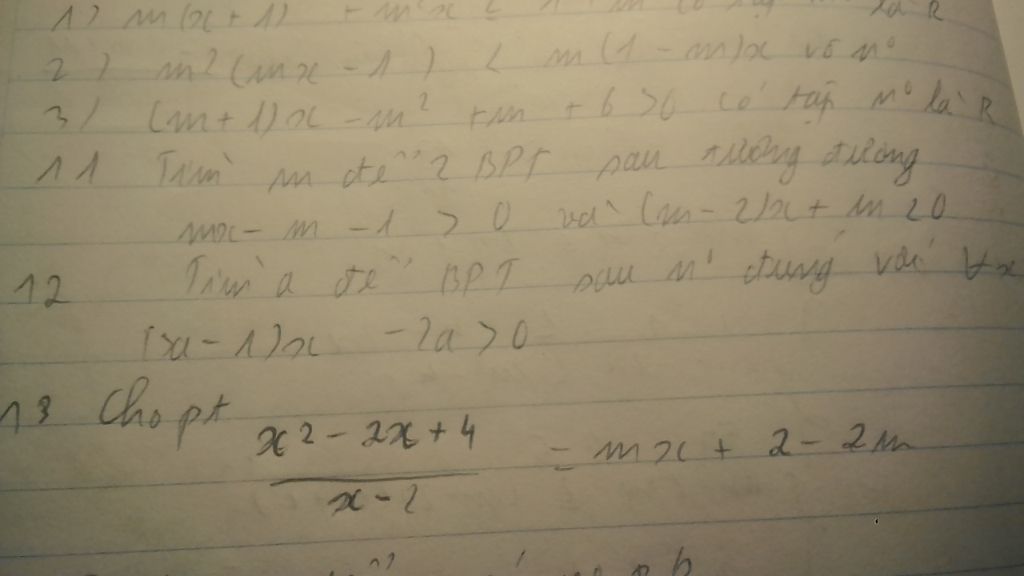 1) m(x+1) + m²x
là R
2) m²(mx - 1) < m(1 - m)x vô n°
3) (m+1)x - m² + m + 6 > 0 có tập n° là R
11 Tìm m để 2 BPT sau tương đương
mx - m - 1 > 0 và (m - 2)x + m ≥ 0
12 Tìm a để BPT sau n° đúng với ∀x
- 1)x - 2a > 0
13 Cho pt
x² - 2x + 4
= mx + 2 - 2m
x - 2